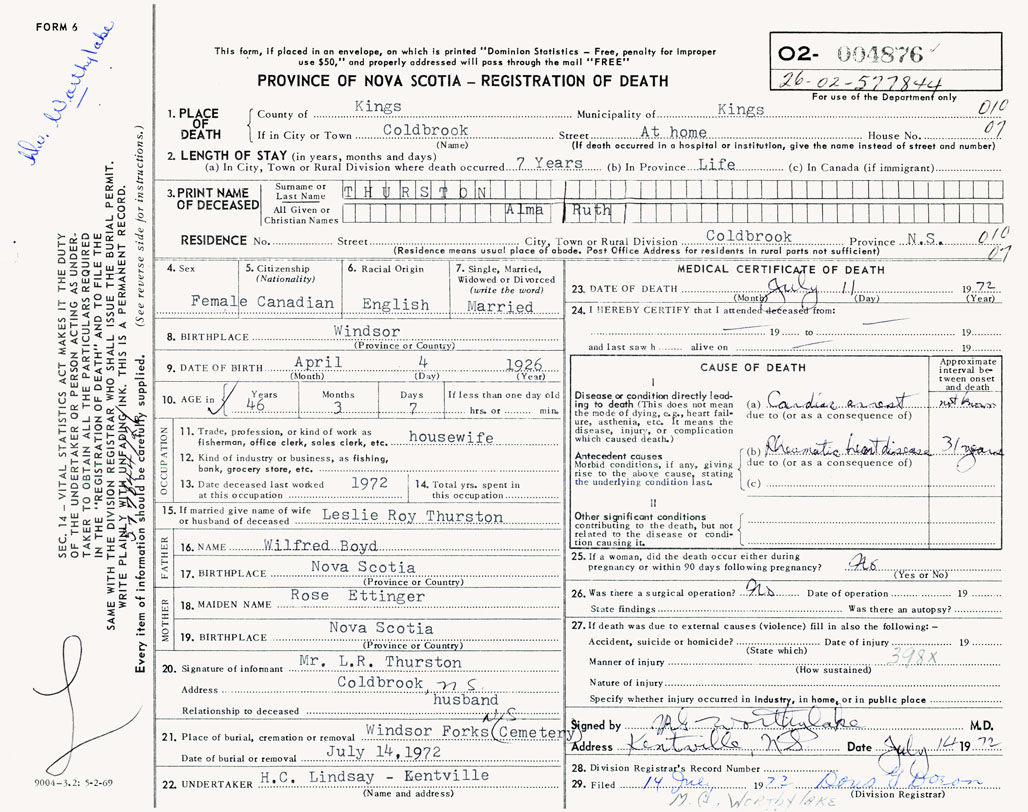 FORM 6
Dr. Worthylake
This form, if placed in an envelope, on which is printed "Dominion Statistics – Free, penalty for improper
use $50," and properly addressed will pass through the mail "FREE"
PROVINCE OF NOVA SCOTIA – REGISTRATION OF DEATH
02- 004876
26-02-577844
For use of the Department only
1. PLACE OF DEATH
County of Kings Municipality of Kings 010
If in City or Town Coldbrook Street At home House No. 07
(Name) (If death occurred in a hospital or institution, give the name instead of street and number)
2. LENGTH OF STAY (in years, months and days)
(a) In City, Town or Rural Division where death occurred 7 Years (b) In Province Life (c) In Canada (if immigrant)
3. PRINT NAME OF DECEASED
Surname or Last Name THURSTON
All Given or Christian Names Alma Ruth
RESIDENCE No. Street City, Town or Rural Division Coldbrook Province N.S. 010
(Residence means usual place of abode. Post Office Address for residents in rural parts not sufficient) 07
4. Sex Female
5. Citizenship (Nationality) Canadian
6. Racial Origin English
7. Single, Married, Widowed or Divorced (write the word) Married
8. BIRTHPLACE Windsor
(Province or Country)
9. DATE OF BIRTH April 4 1926
(Month) (Day) (Year)
10. AGE in Years Months Days If less than one day old
46 3 7 hrs. or min.
OCCUPATION
11. Trade, profession, or kind of work as
fisherman, office clerk, sales clerk, etc. housewife
12. Kind of industry or business, as fishing,
bank, grocery store, etc.
13. Date deceased last worked at this occupation 1972
14. Total yrs. spent in this occupation
15. If married give name of wife
or husband of deceased Leslie Roy Thurston
FATHER
16. NAME Wilfred Boyd
17. BIRTHPLACE Nova Scotia
(Province or Country)
MOTHER
18. MAIDEN NAME Rose Ettinger
19. BIRTHPLACE Nova Scotia
(Province or Country)
20. Signature of informant Mr. L.R. Thurston
Address Coldbrook, N.S.
Relationship to deceased husband
N/S
21. Place of burial, cremation or removal Windsor Forks (Cemetery)
Date of burial or removal July 14,1972
22. UNDERTAKER H.C. Lindsay - Kentville
(Name and address)
MEDICAL CERTIFICATE OF DEATH
23. DATE OF DEATH July 11 1972
(Month) (Day) (Year)
24. I HEREBY CERTIFY that I attended deceased from:
19 to 19
and last saw h alive on 19
CAUSE OF DEATH
Approximate interval between onset and death
I
Disease or condition directly leading to death (This does not mean the mode of dying, e.g., heart failure, asthenia, etc. It means the disease, injury, or complication which caused death.)
(a) Cardiac arrest not known
due to (or as a consequence of)
Antecedent causes
Morbid conditions, if any, giving rise to the above cause, stating the underlying condition last.
(b) Rheumatic heart disease 31 years
due to (or as a consequence of)
(c)
II
Other significant conditions
contributing to the death, but not related to the disease or condition causing it.
25. If a woman, did the death occur either during
pregnancy or within 90 days following pregnancy? No
(Yes or No)
26. Was there a surgical operation? No Date of operation 19
State findings Was there an autopsy?
27. If death was due to external causes (violence) fill in also the following: –
Accident, suicide or homicide? Date of injury 19
(State which) 398X
Manner of injury
(How sustained)
Nature of injury
Specify whether injury occurred in industry, in home, or in public place
Signed by Worthylake M.D.
Address Kentville, NS Date July 14 1972
28. Division Registrar's Record Number
29. Filed 14 July 1972
(Division Registrar)
WORTHYLAKE
SEC. 14 – VITAL STATISTICS ACT MAKES IT THE DUTY
OF THE UNDERTAKER OR PERSON ACTING AS UNDER-
TAKER TO OBTAIN ALL THE PARTICULARS REQUIRED
IN THE "REGISTRATION OF DEATH" AND TO FILE THE
SAME WITH THE DIVISION REGISTRAR WHO SHALL ISSUE THE BURIAL PERMIT.
WRITE PLAINLY WITH UNFADING INK. THIS IS A PERMANENT RECORD.
Every item of information should be carefully supplied. (See reverse side for instructions.)
9004-3.2: 5-2-69